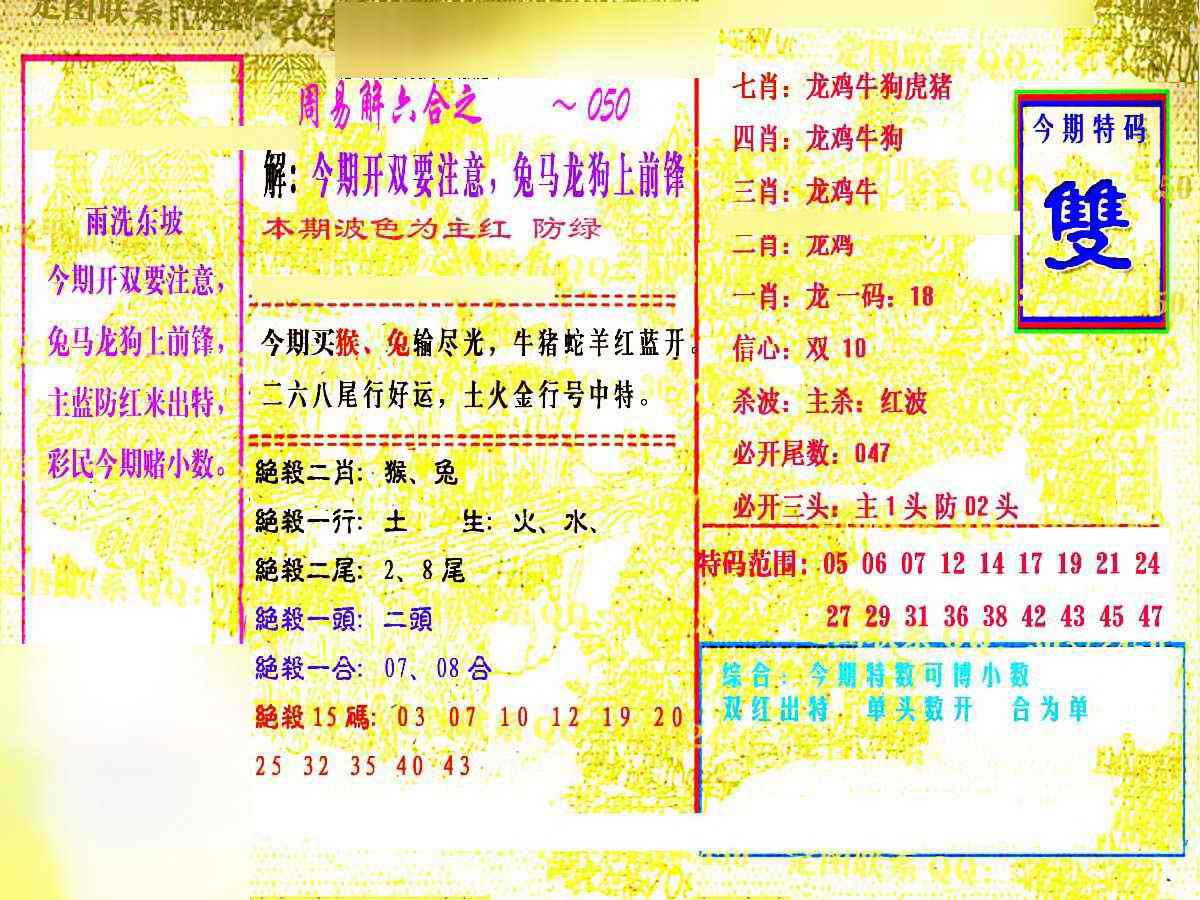 雨洗东坡
今期开双要注意，
兔马龙狗上前锋，
主蓝防红来出特，
彩民今期赌小数。
周易解六合之 ～050
解：今期开双要注意，兔马龙狗上前锋
本期波色为主红 防绿
今期买猴、兔输尽光，牛猪蛇羊红蓝开。
二六八尾行好运，土火金行号中特。
絕殺二肖：猴、兔
絕殺一行：土 生：火、水、
絕殺二尾：2、8尾
絕殺一頭：二頭
絕殺一合：07、08合
絕殺15碼：03 07 10 12 19 20
25 32 35 40 43
七肖：龙鸡牛狗虎猪
四肖：龙鸡牛狗
三肖：龙鸡牛
二肖：龙鸡
一肖：龙一码：18
信心：双 10
杀波：主杀：红波
必开尾数：047
必开三头：主1头防02头
今期特码
雙
特码范围：05 06 07 12 14 17 19 21 24
27 29 31 36 38 42 43 45 47
综合：今期特数可博小数
双红出特．单头数开 合为单